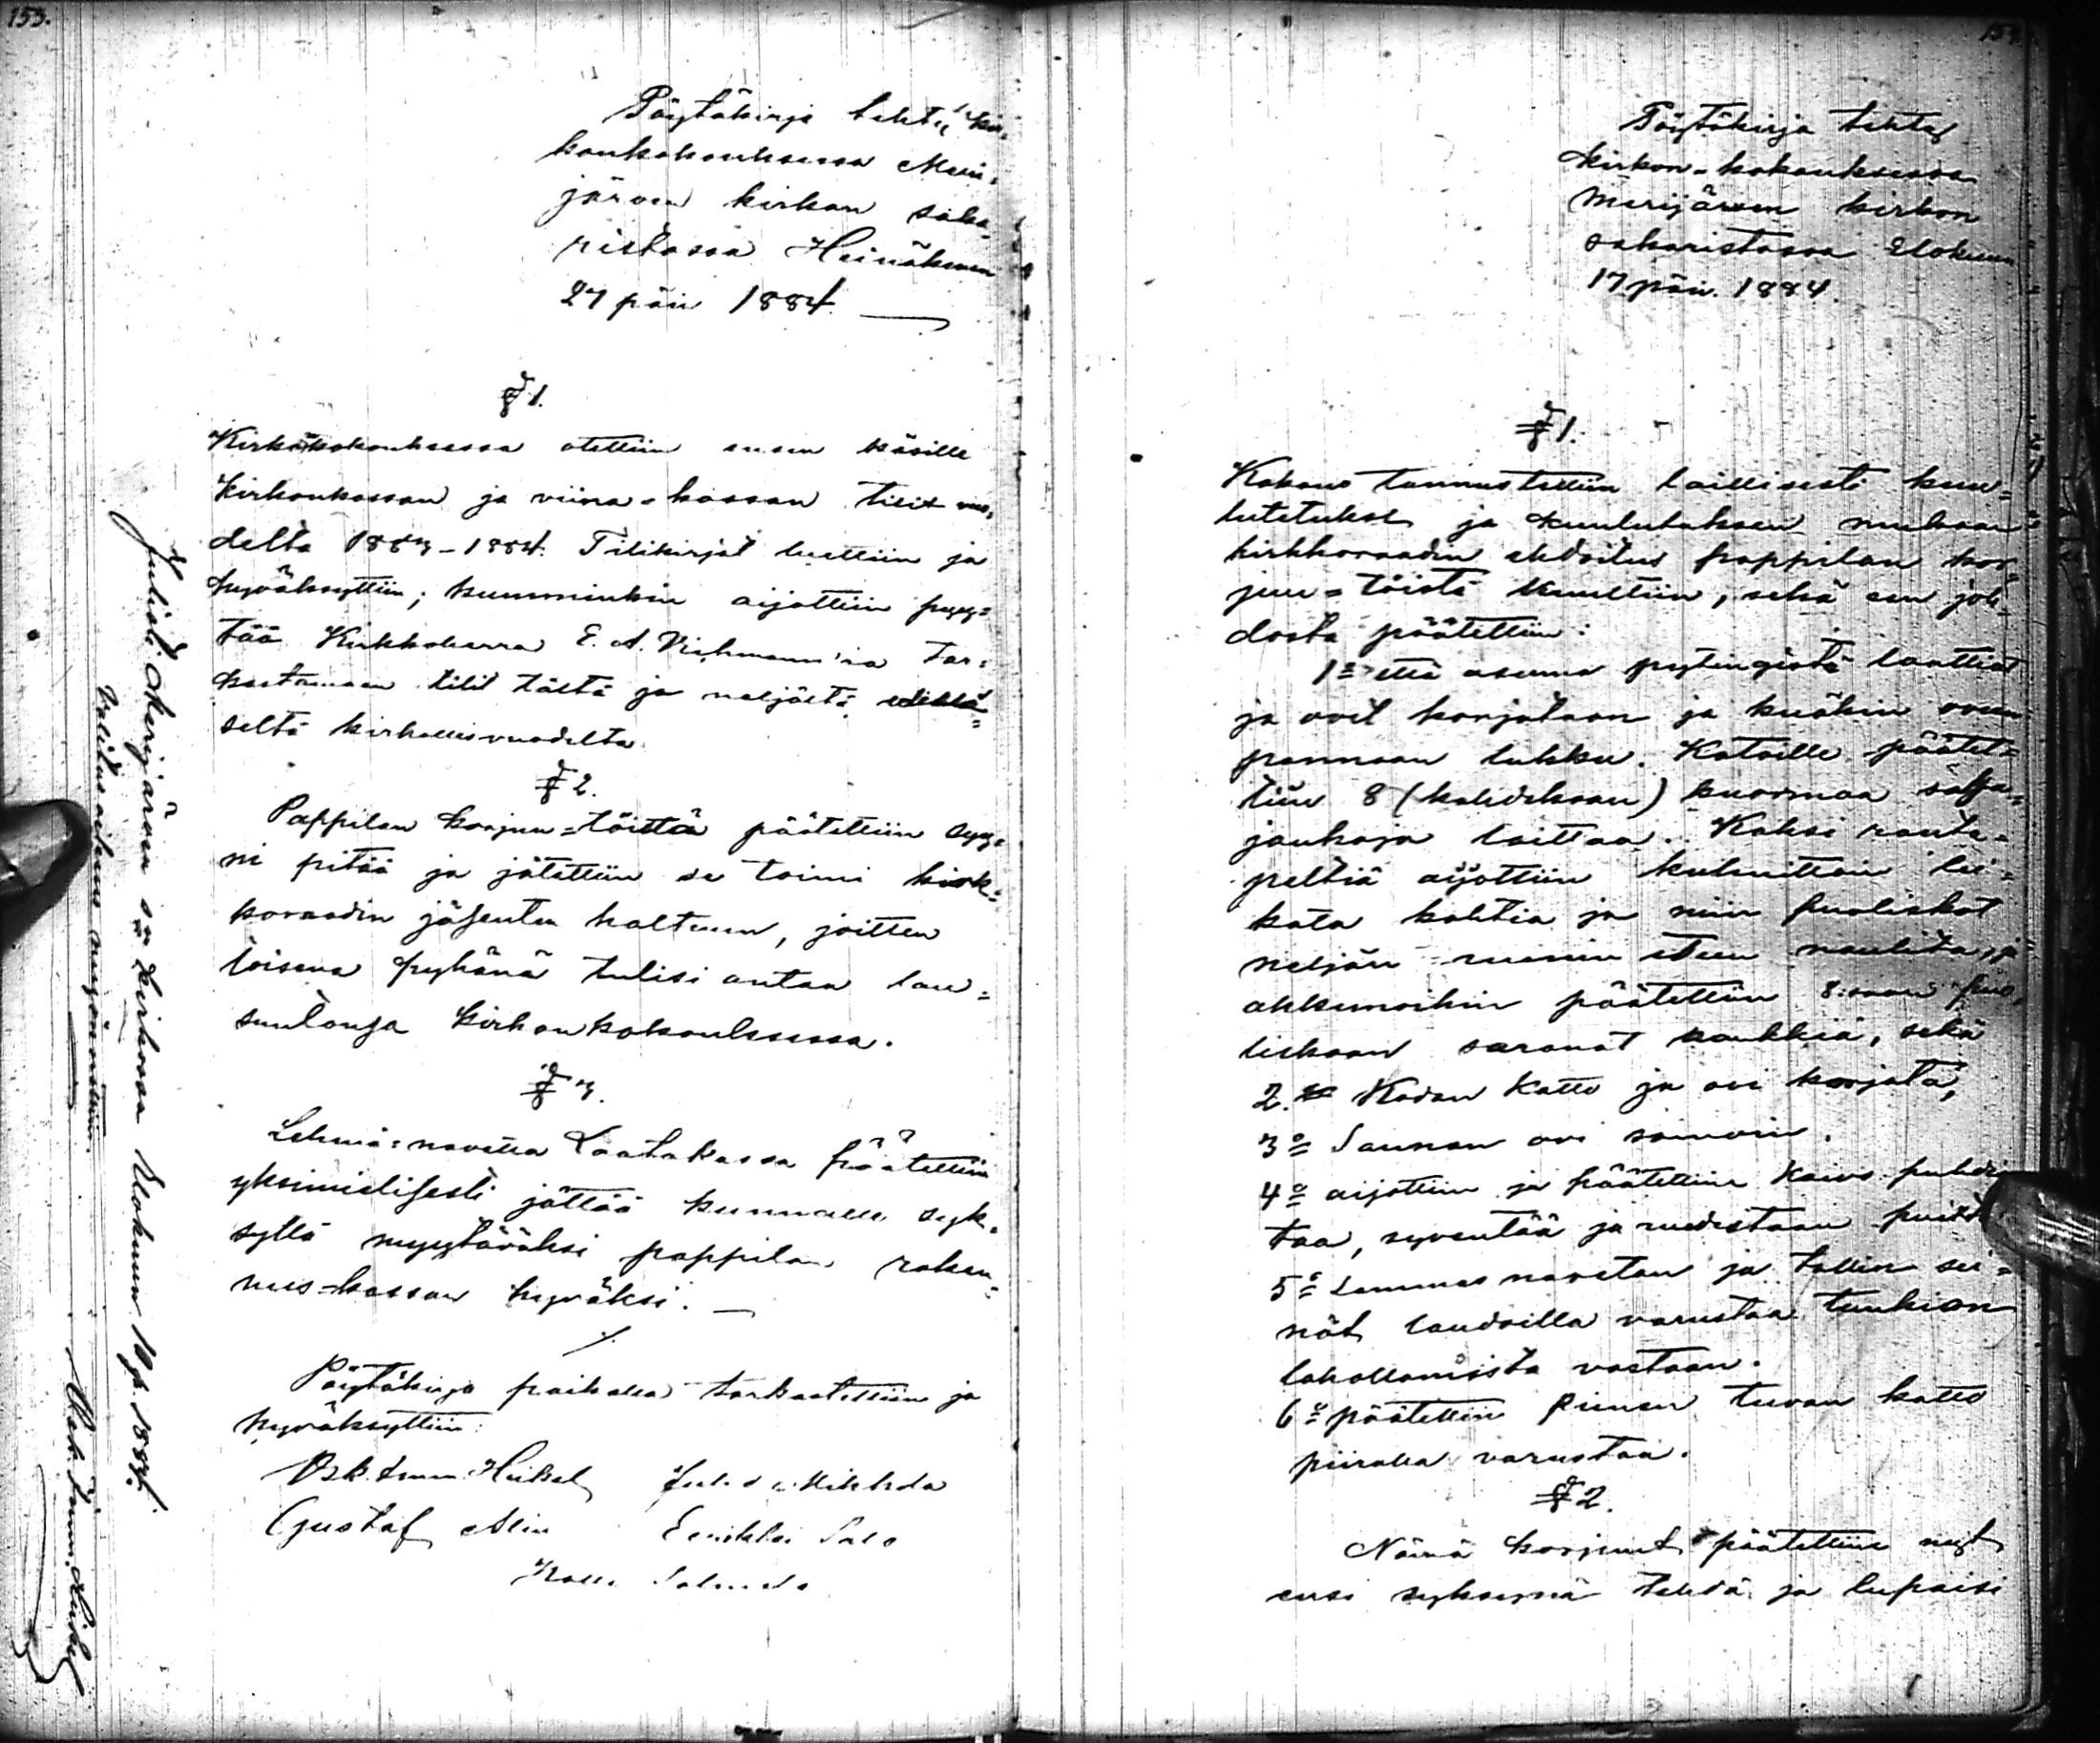 153.
Pöytäkirja tehty kir-
konkokouksessa Meri-
järven kirkon saka-
ristossa Heinäkuun
27 päiv 1884.
§ 1.
Kirkonkokouksessa otettiin ensin käsille
Kirkonkassan ja viina-kassan tilit vuo-
delta 1883-1884. Tilikirjat luettiin ja
hyväksyttiin; kumminkin aijottiin pyy-
tää Kirkkoherra E. A. tar-
kastamaan tilit tästä ja neljästä edellä-
seltä kirkollisvuodelta
§ 2.
Pappilan korjuu-töistä päätettiin syy-
ni pitää ja jätettiin se toimi kirk-
koraadin jäsenten haltuun, joitten
toisena pyhänä tulisi antaa lau-
suntonsa kirkonkokouksessa.
§ 3.
Lehmä-navetta Laatakassa päätettiin
yksimielisesti jättää kunnalle syk-
syllä myytäväksi pappilan raken-
nus-kassan hyväksi. —
Pöytäkirja paikalla tarkastettiin ja
hyväksyttiin:
Isak Imm. Heikel Juho Mikkola
Gustaf Alin Eerikki Salo
Kalle
Julisti Merijärven kirkossa Elokuun 10 p. 1884.
Valitus aikaa myönnettiin.
Isak Imm. Heikel
Pöytäkirja tehty
Kirkon-kokouksessa
Merijärven kirkon
sakaristossa Elokuun
17 päiv. 1884.
§ 1.
Kokous tunnustettiin laillisesti kuu-
lutetuksi ja kuulutuksen mukaan
kirkkoraadin ehdoitus pappilan kor-
juu-töistä kuultiin, sekä sen joh-
dosta päätettiin:
1:o että asuma pytingistä laattiat
ja ovit korjataan ja kuhäkin oveen
pannaan lukku. Katoille päätet-
tiin 8 (kahdeksan) kuormaa
jauhoja laittaa. Kaksi rauta-
peltiä aijottiin kulmittain lei-
kata kahtia ja niin puoliskot
neljän uunin eteen naulita, ja
akkunoihin päätettiin 8:saan puo-
liskaan saranat hankkia, sekä
2. Kodan katto ja ovi korjata,
3:o Saunan ovi samoin.
4:o aijottiin ja päätettiin kaivo puhdis
taa, syventää ja uudestaan
5:o Lammas navetan ja tallin sei-
nät laudoilla varustaa tunkion
lahollamista vastaan.
6:o päätettiin Pienen tuvan katto
piiralla varustaa.
§ 2.
Nämä korjuut päätettiin nyt
ensi syksynä tehdä ja lupaisi